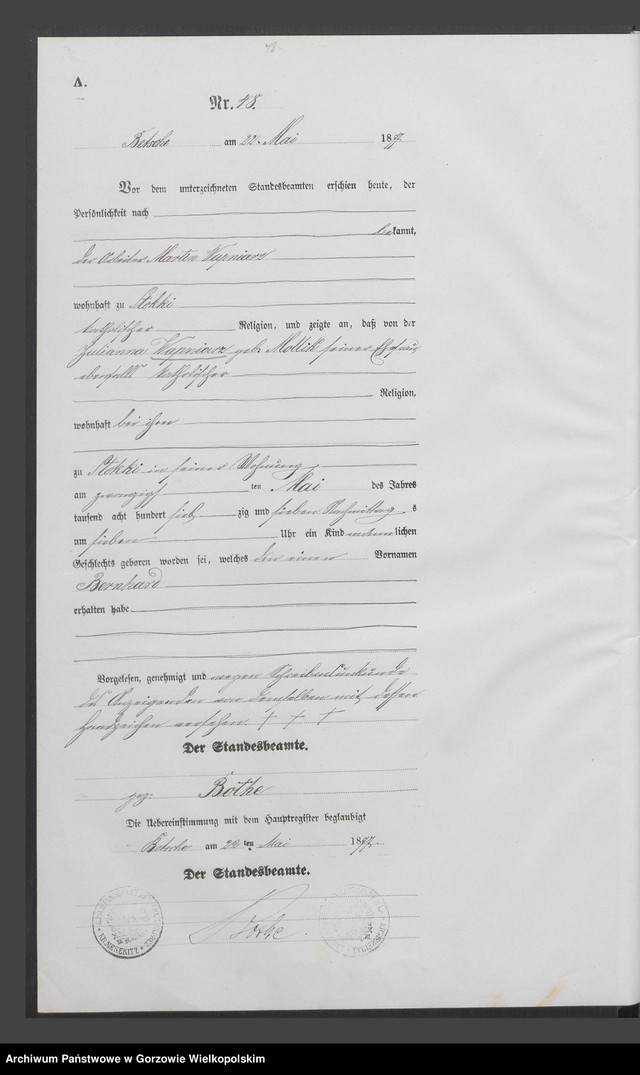 A.
Nr. 48.
Betsche am 22. Mai 1877
Vor dem unterzeichneten Standesbeamten erschien heute, der
Persönlichkeit nach
bekannt,
der Arbeiter Martin
wohnhaft zu Stokki
katholischer Religion, und zeigte an, daß von der
Julianna geb. Mollik seiner Ehefrau
ebenfalls katholischer
Religion,
wohnhaft bei ihm
zu Stokki in seiner Wohnung
am zwanzigsten Mai des Jahres
tausend acht hundert siebzig und sieben Nachmittags
um sieben Uhr ein Kind männlichen
Geschlechts geboren worden sei, welches den einen Vornamen
Bernhard
erhalten habe
Vorgelesen, genehmigt und wegen Schreibensunkunde
des Anzeigenden von demselben mit dessen
Handzeichen versehen. † † †
Der Standesbeamte.
gez: Bothe
Die Uebereinstimmung mit dem Hauptregister beglaubigt
Betsche am 22ten Mai 1877.
Der Standesbeamte.
Bothe.
Archiwum Państwowe w Gorzowie Wielkopolskim